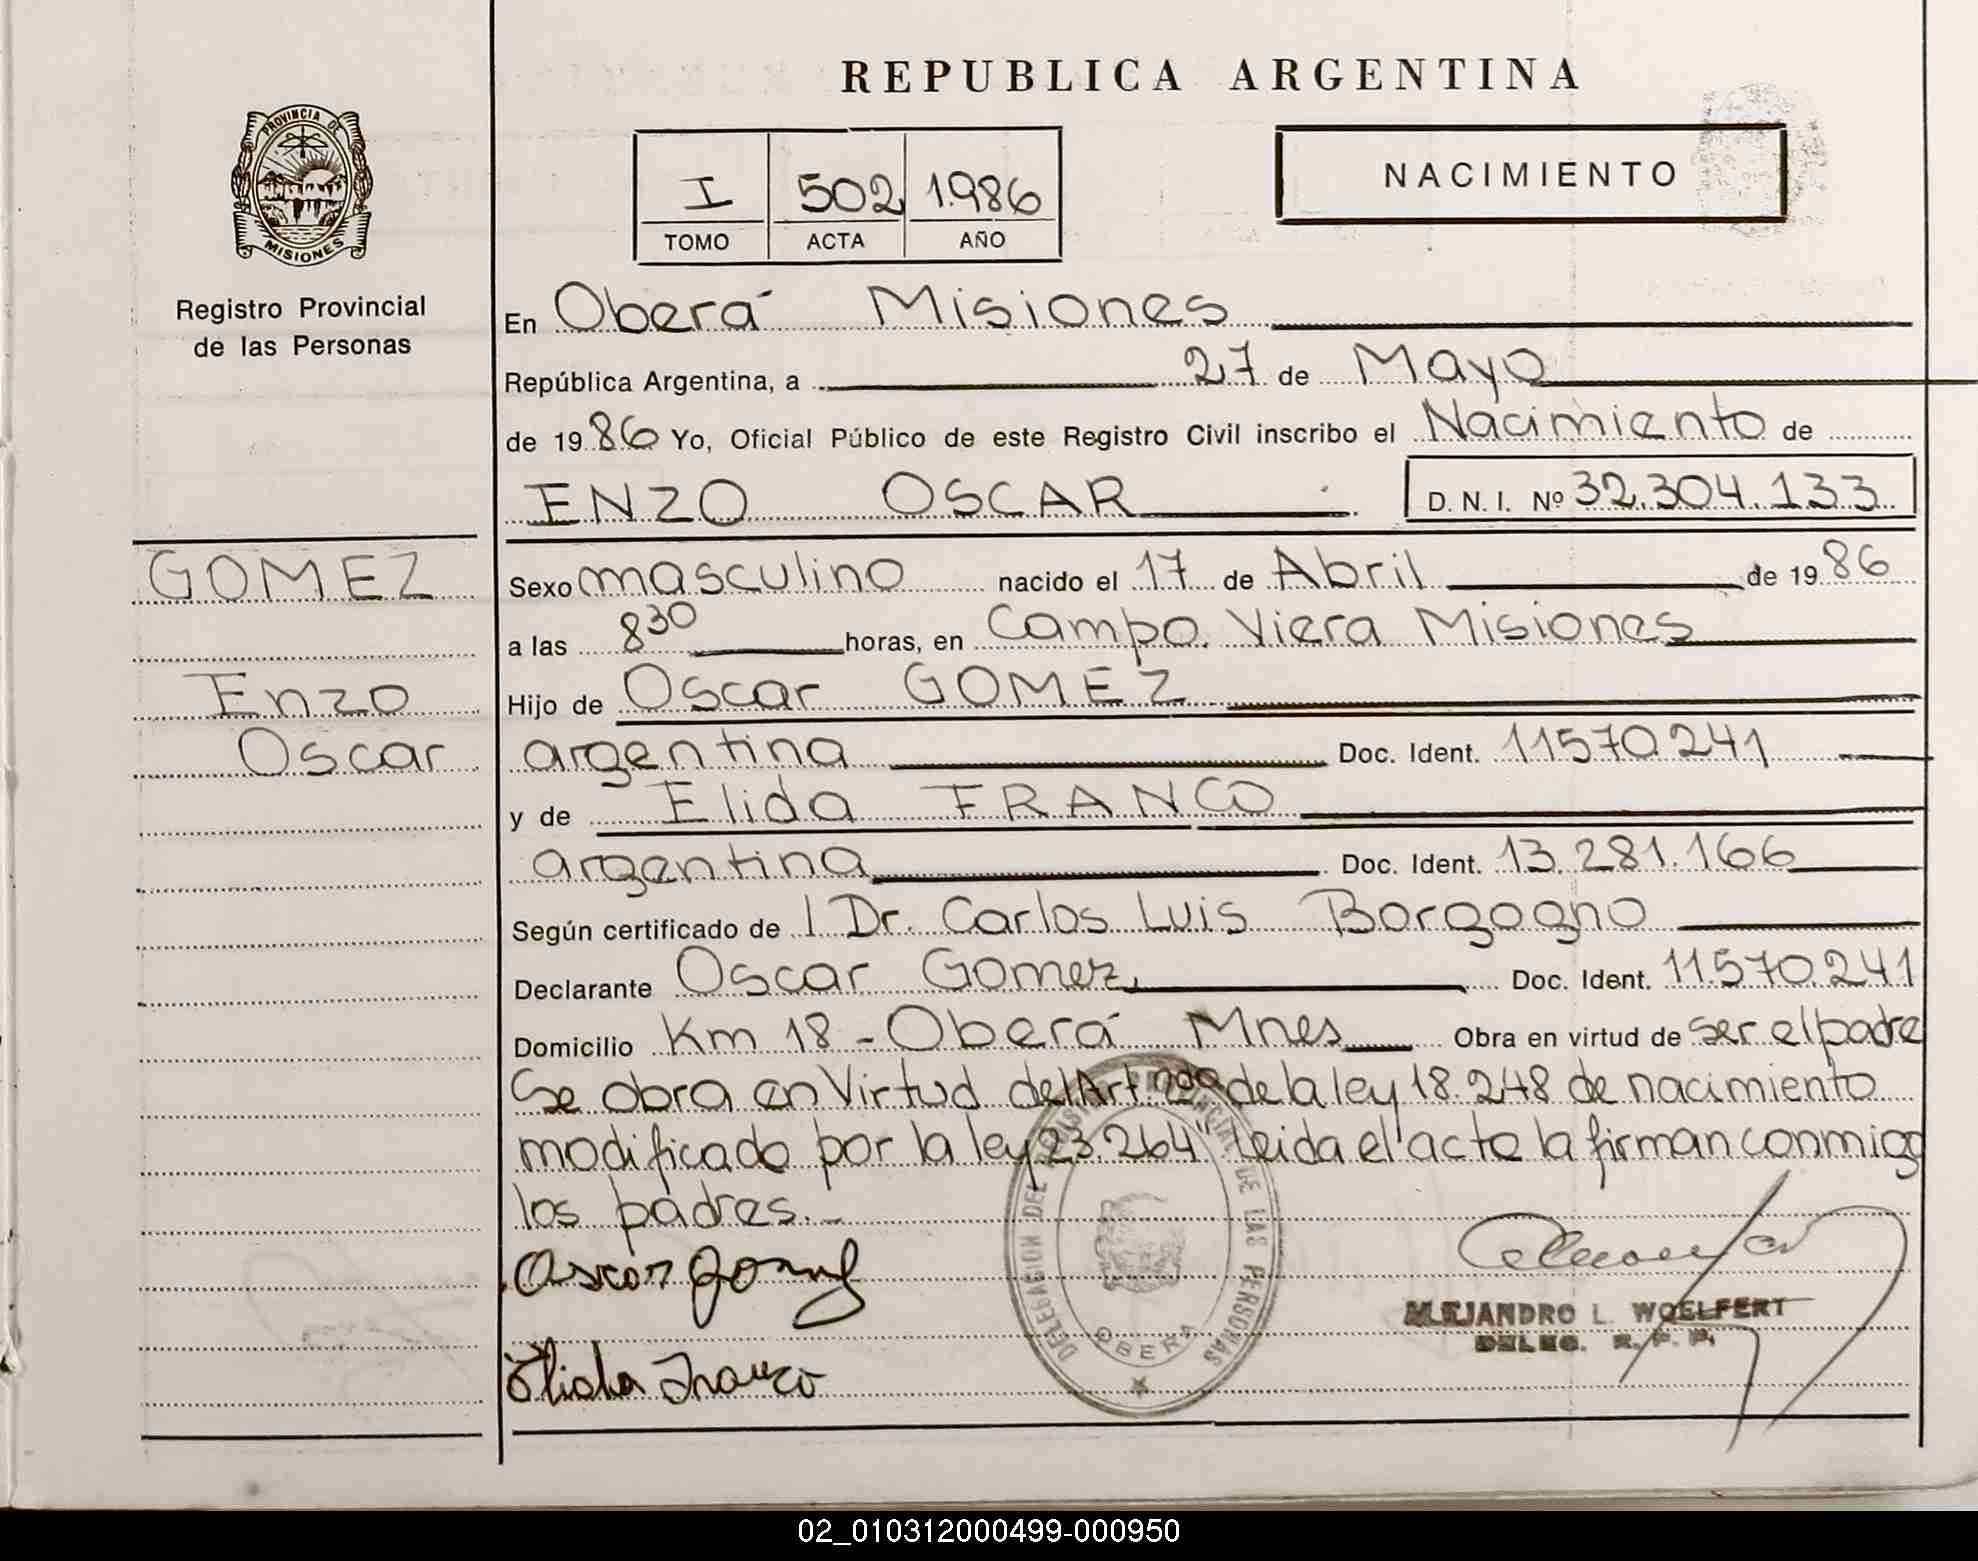 REPUBLICA ARGENTINA
PROVINCIA DE
MISIONES
Registro Provincial
de las Personas
I 502 1.986
TOMO ACTA AÑO
NACIMIENTO
En Oberá Misiones
República Argentina, a 27 de Mayo
de 19 86 Yo, Oficial Público de este Registro Civil inscribo el Nacimiento de
ENZO OSCAR D. N. I. Nº 32.304.133
GOMEZ
Enzo
Oscar
Sexo masculino nacido el 17 de Abril de 19 86
a las 8 30 horas, en Campo Viera Misiones
Hijo de Oscar GOMEZ
argentina Doc. Ident. 11570.241
y de Elida FRANCO
argentina Doc. Ident. 13.281.166
Según certificado de l Dr. Carlos Luis Borgogno
Declarante Oscar Gomez, Doc. Ident. 11.570.241
Domicilio Km 18 - Oberá Mnes Obra en virtud de ser el padre
Se obra en Virtud del Art. 2do de la ley 18.248 de nacimiento
modificado por la ley 23.264" leida el acta la firman conmigo
los padres.-
Oscar Gomez
Elida Franco
DELEGACION DEL REGISTRO PROVINCIAL DE LAS PERSONAS
OBERA
ALEJANDRO L. WOELFERT
DELEG. R. P. P.
02_010312000499-000950